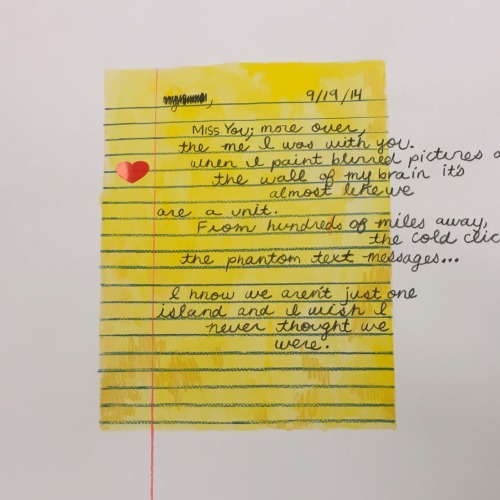 9/19/14
Miss You; more over,
the me I was with you.
when I paint blurred pictures
the wall of my brain it's
almost like we
are a unit.
From hundreds of miles away,
the cold clic
the phantom text messages...
I know we aren't just one
island and I wish I
never thought we
were.